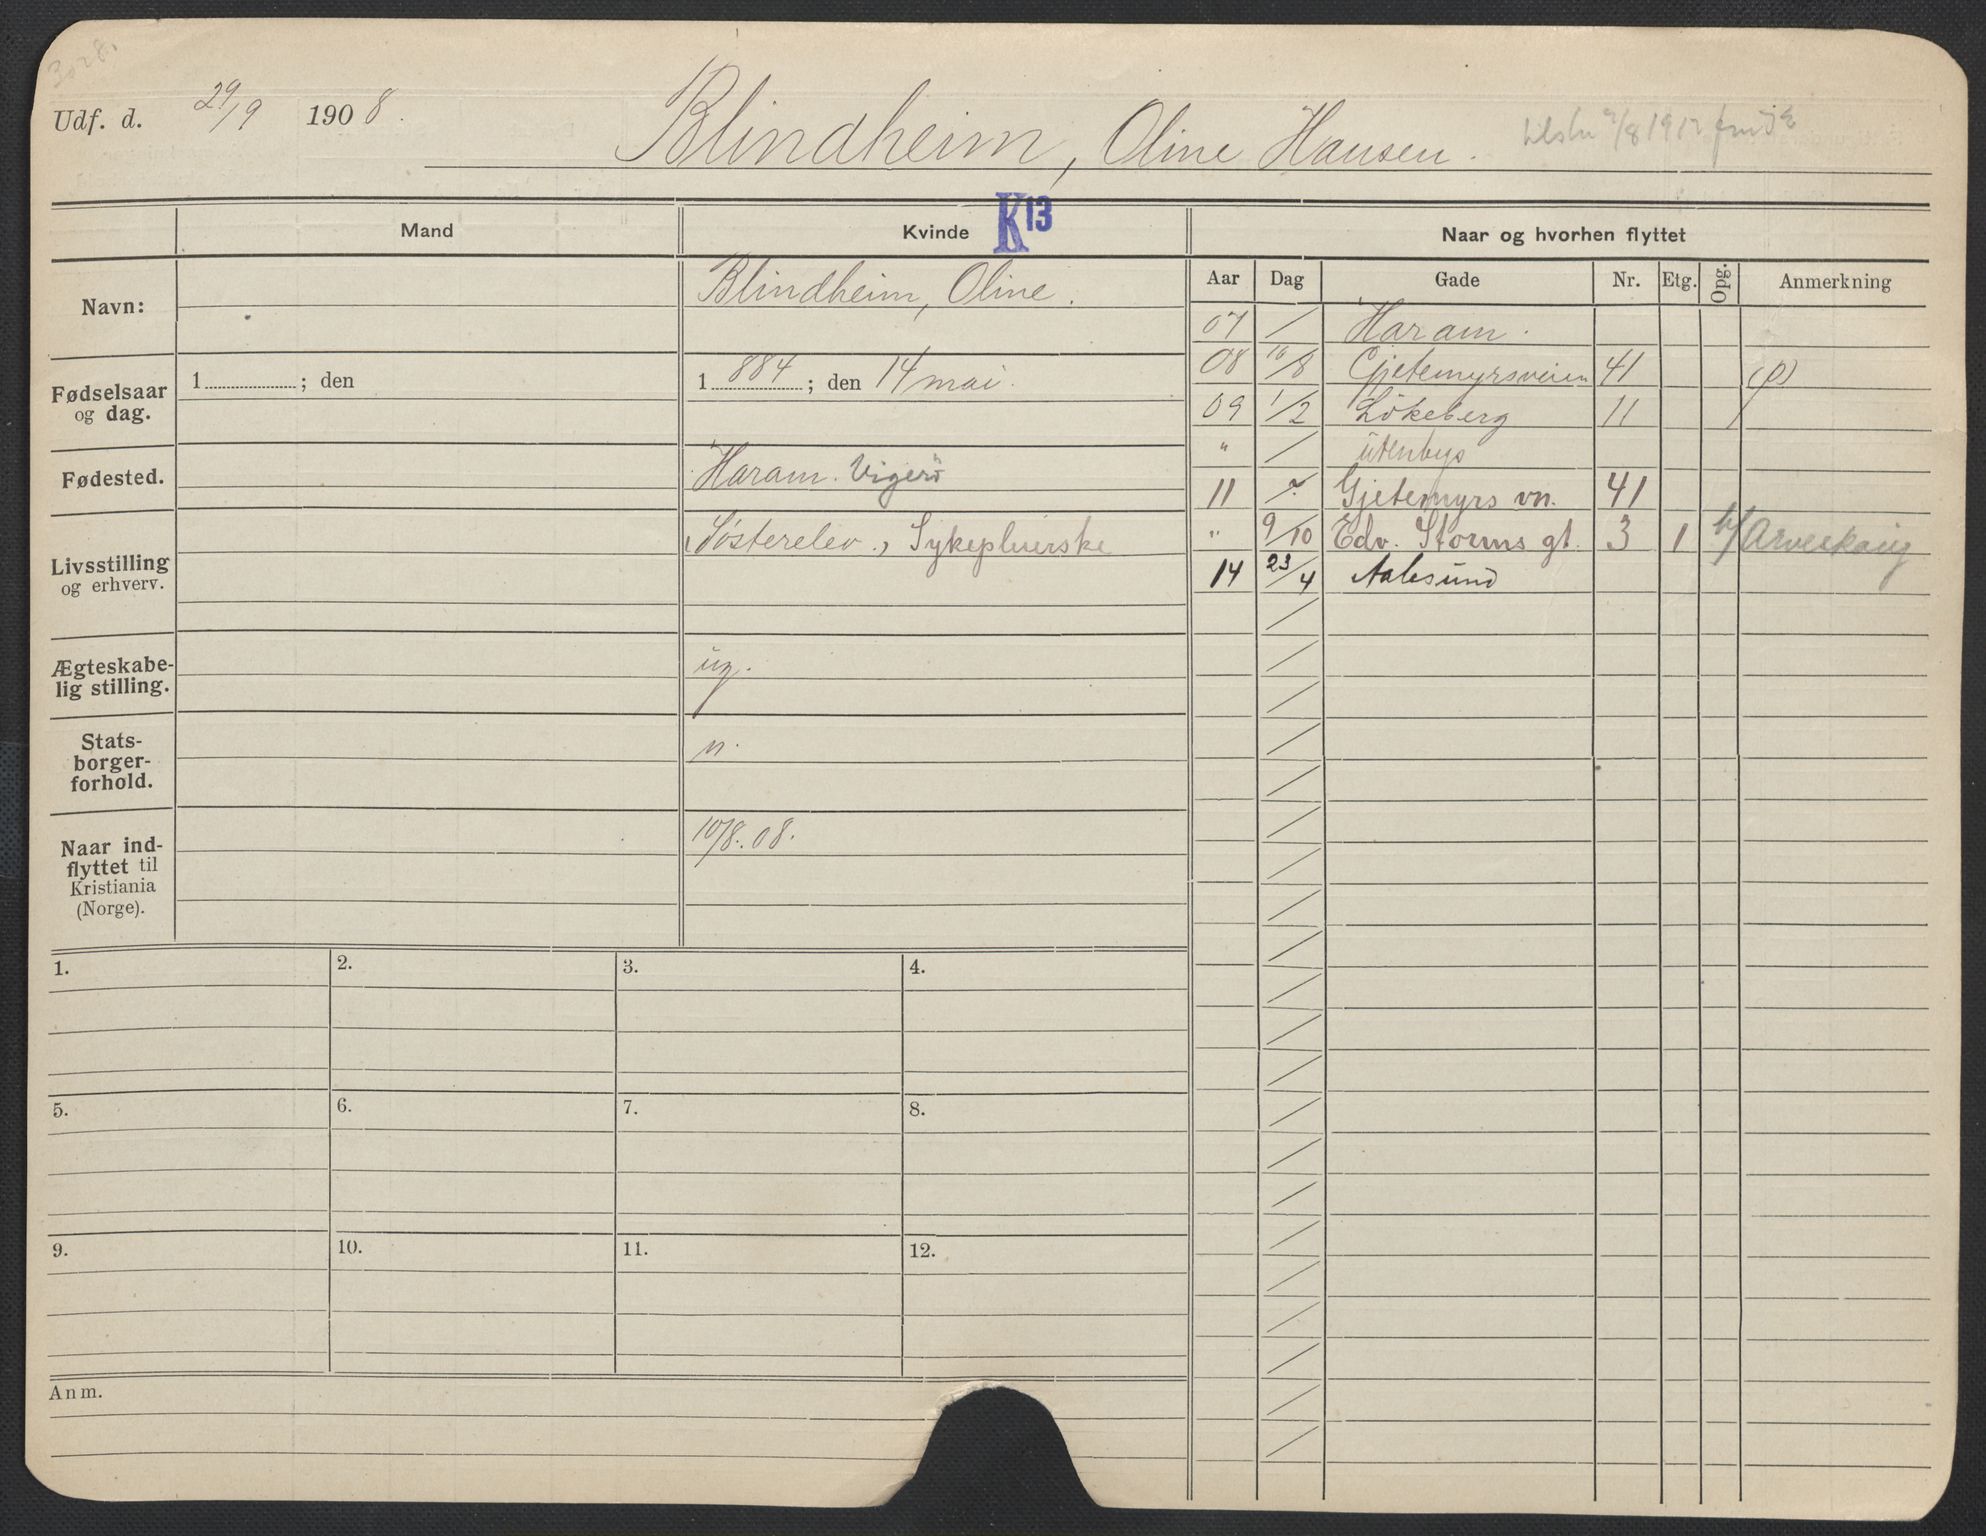 3028.
Udf. d. 29/9 1908.
Blindheim, Oline Hansen.
Mand
Kvinde
K13
Naar og hvorhen flyttet
Navn:
Blindheim, Oline.
Fødselsaar og dag.
1 ; den
1884 ; den 14 mai.
Fødested.
Haram. Vigerö
Livsstilling og erhverv.
Søsterelev., Sykepluerske
Ægteskabelig stilling.
ug.
Statsborgerforhold.
n.
Naar indflyttet til Kristiania (Norge).
10/8.08.
Aar Dag Gade Nr. Etg. Opg. Anmerkning
07 / Haram.
08 10/8 Gjetemyrsveien 41 (p)
09 1/2 Lökeberg 11
" / ütenbys
11 /? Gjetemyrs vn. 41
" 9/10 Edv. Storms gt. 3 1
14 23/4 Aalesund
1.
2.
3.
4.
5.
6.
7.
8.
9.
10.
11.
12.
Anm.